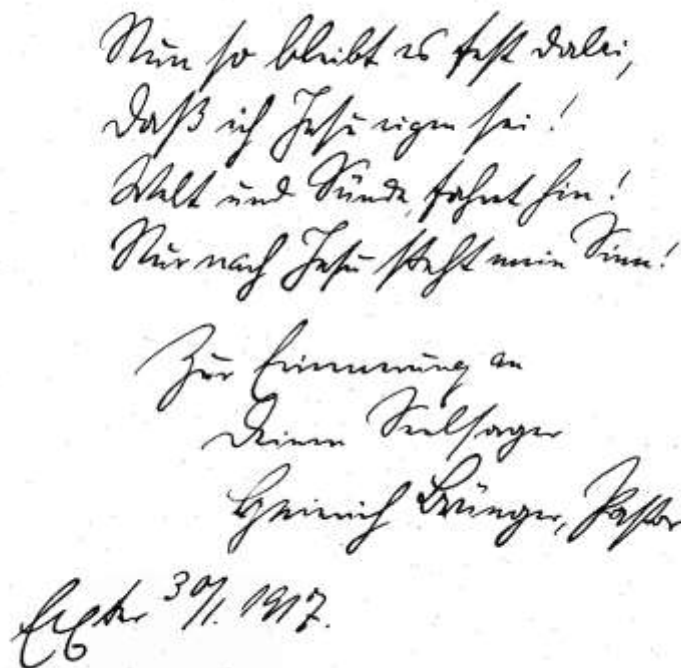 Nun so bleibt es fest dabei,
daß ich Jesu eigen sei!
Welt und Sünde, fahret hin!
Nur nach Jesu steht mein Sinn!
Zur Erinnerung an
Deinen Seelsorger
Heinrich Brünger, Pastor
Exter 30/1. 1917.